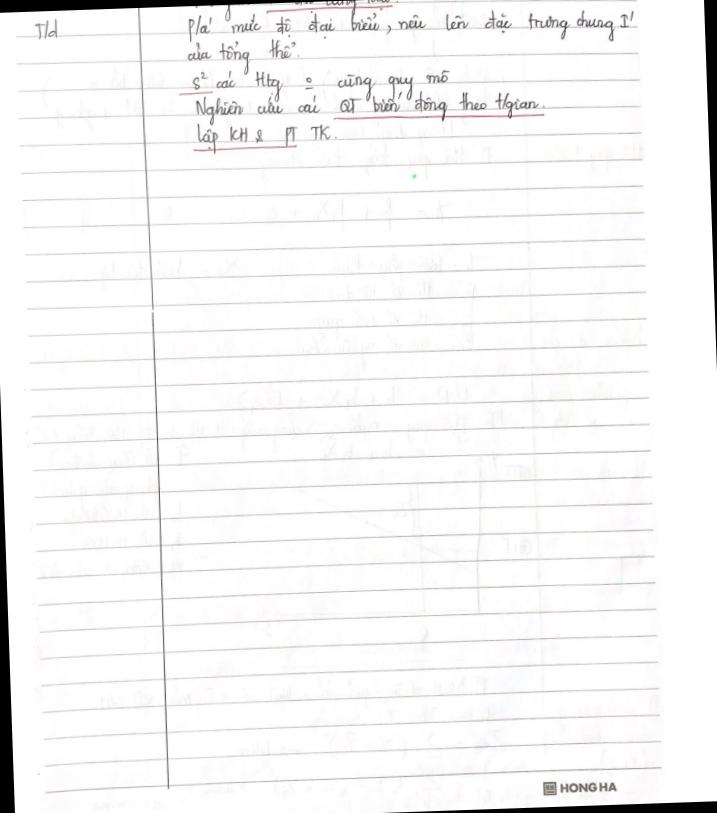 T/d
P/á mức độ đại biểu, nêu lên đặc trưng chung I'
của tổng thể.
S² các Htg o cùng quy mô
Nghiên cứu các QT biến động theo t/gian.
lập KH & PT TK.
HONG HA